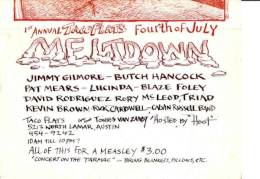 1ST ANNUAL TACO FLATS FOURTH OF JULY
MELTDOWN
JIMMY GILMORE - BUTCH HANCOCK
PAT MEARS - LUCINDA - BLAZE FOLEY
DAVID RODRIGUEZ RORY MCLEOD, TRIAD
KEVIN BROWN, RICK CARDWELL - CALVIN RUSSELL BAND
TACO FLATS
5213 NORTH LAMAR, AUSTIN
454-9242
10AM TILL 10PM?
TOWNES VAN ZANDT "HOSTED BY" "HOOT"
ALL OF THIS FOR A MEASLEY $3.00
"CONCERT ON THE "TARMAC" - BRING BLANKETS, PILLOWS, ETC.